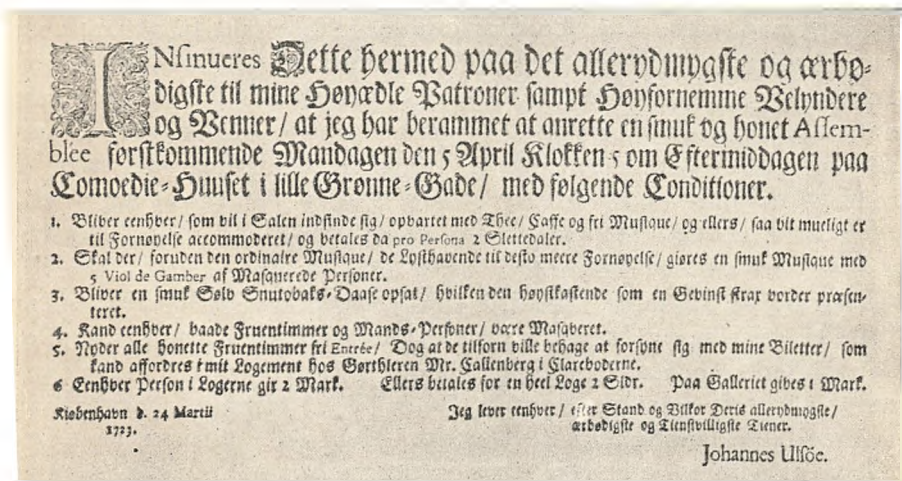 INsinueres Dette hermed paa det allerydmygste og ærbø-
digste til mine Høyædle Patroner sampt Høyfornemme Velyndere
og Venner/ at jeg har berammet at anrette en smuk og honet Assem-
blée førstkommende Mandagen den 5 April Klokken 5 om Eftermiddagen paa
Comoedie-Huuset i lille Grønne-Gade/ med følgende Conditioner.
1. Bliver eenhver/ som vil i Salen indfinde sig/ opvartet med Thee/ Caffe og fri Musique/ og ellers/ saa vit mueligt er
til Fornøyelse accommoderet/ og betales da pro Persona 2 Slettedaler.
2. Skal der/ foruden den ordinaire Musique/ de Lysthavende til desto meere Fornøyelse/ giøres en smuk Musique med
5 Viol de Gamber af Masquerede Personer.
3. Bliver en smuk Sølv Snutobaks-Daase opsat/ hvilken den høystkastende som en Gevinst strax vorder præsen-
teret.
4. Kand eenhver/ baade Fruentimmer og Mands-Personer/ være Masqveret.
5. Nyder alle honette Fruentimmer fri Entrée/ Dog at de tilforn ville behage at forsyne sig med mine Biletter/ som
kand affordres i mit Logement hos Gørthleren Mr. Callenberg i Clareboderne.
6 Eenhver Person i Logerne gir 2 Mark. Ellers betales for en heel Loge 2 Sldr. Paa Galleriet gives 1 Mark.
Kiøbenhavn d. 24 Martii
1723.
Jeg lever eenhver/ efter Stand og Vilkor Deris allerydmygste/
ærbødigste og Tienstvilligste Tiener.
Johannes Ulsöe.